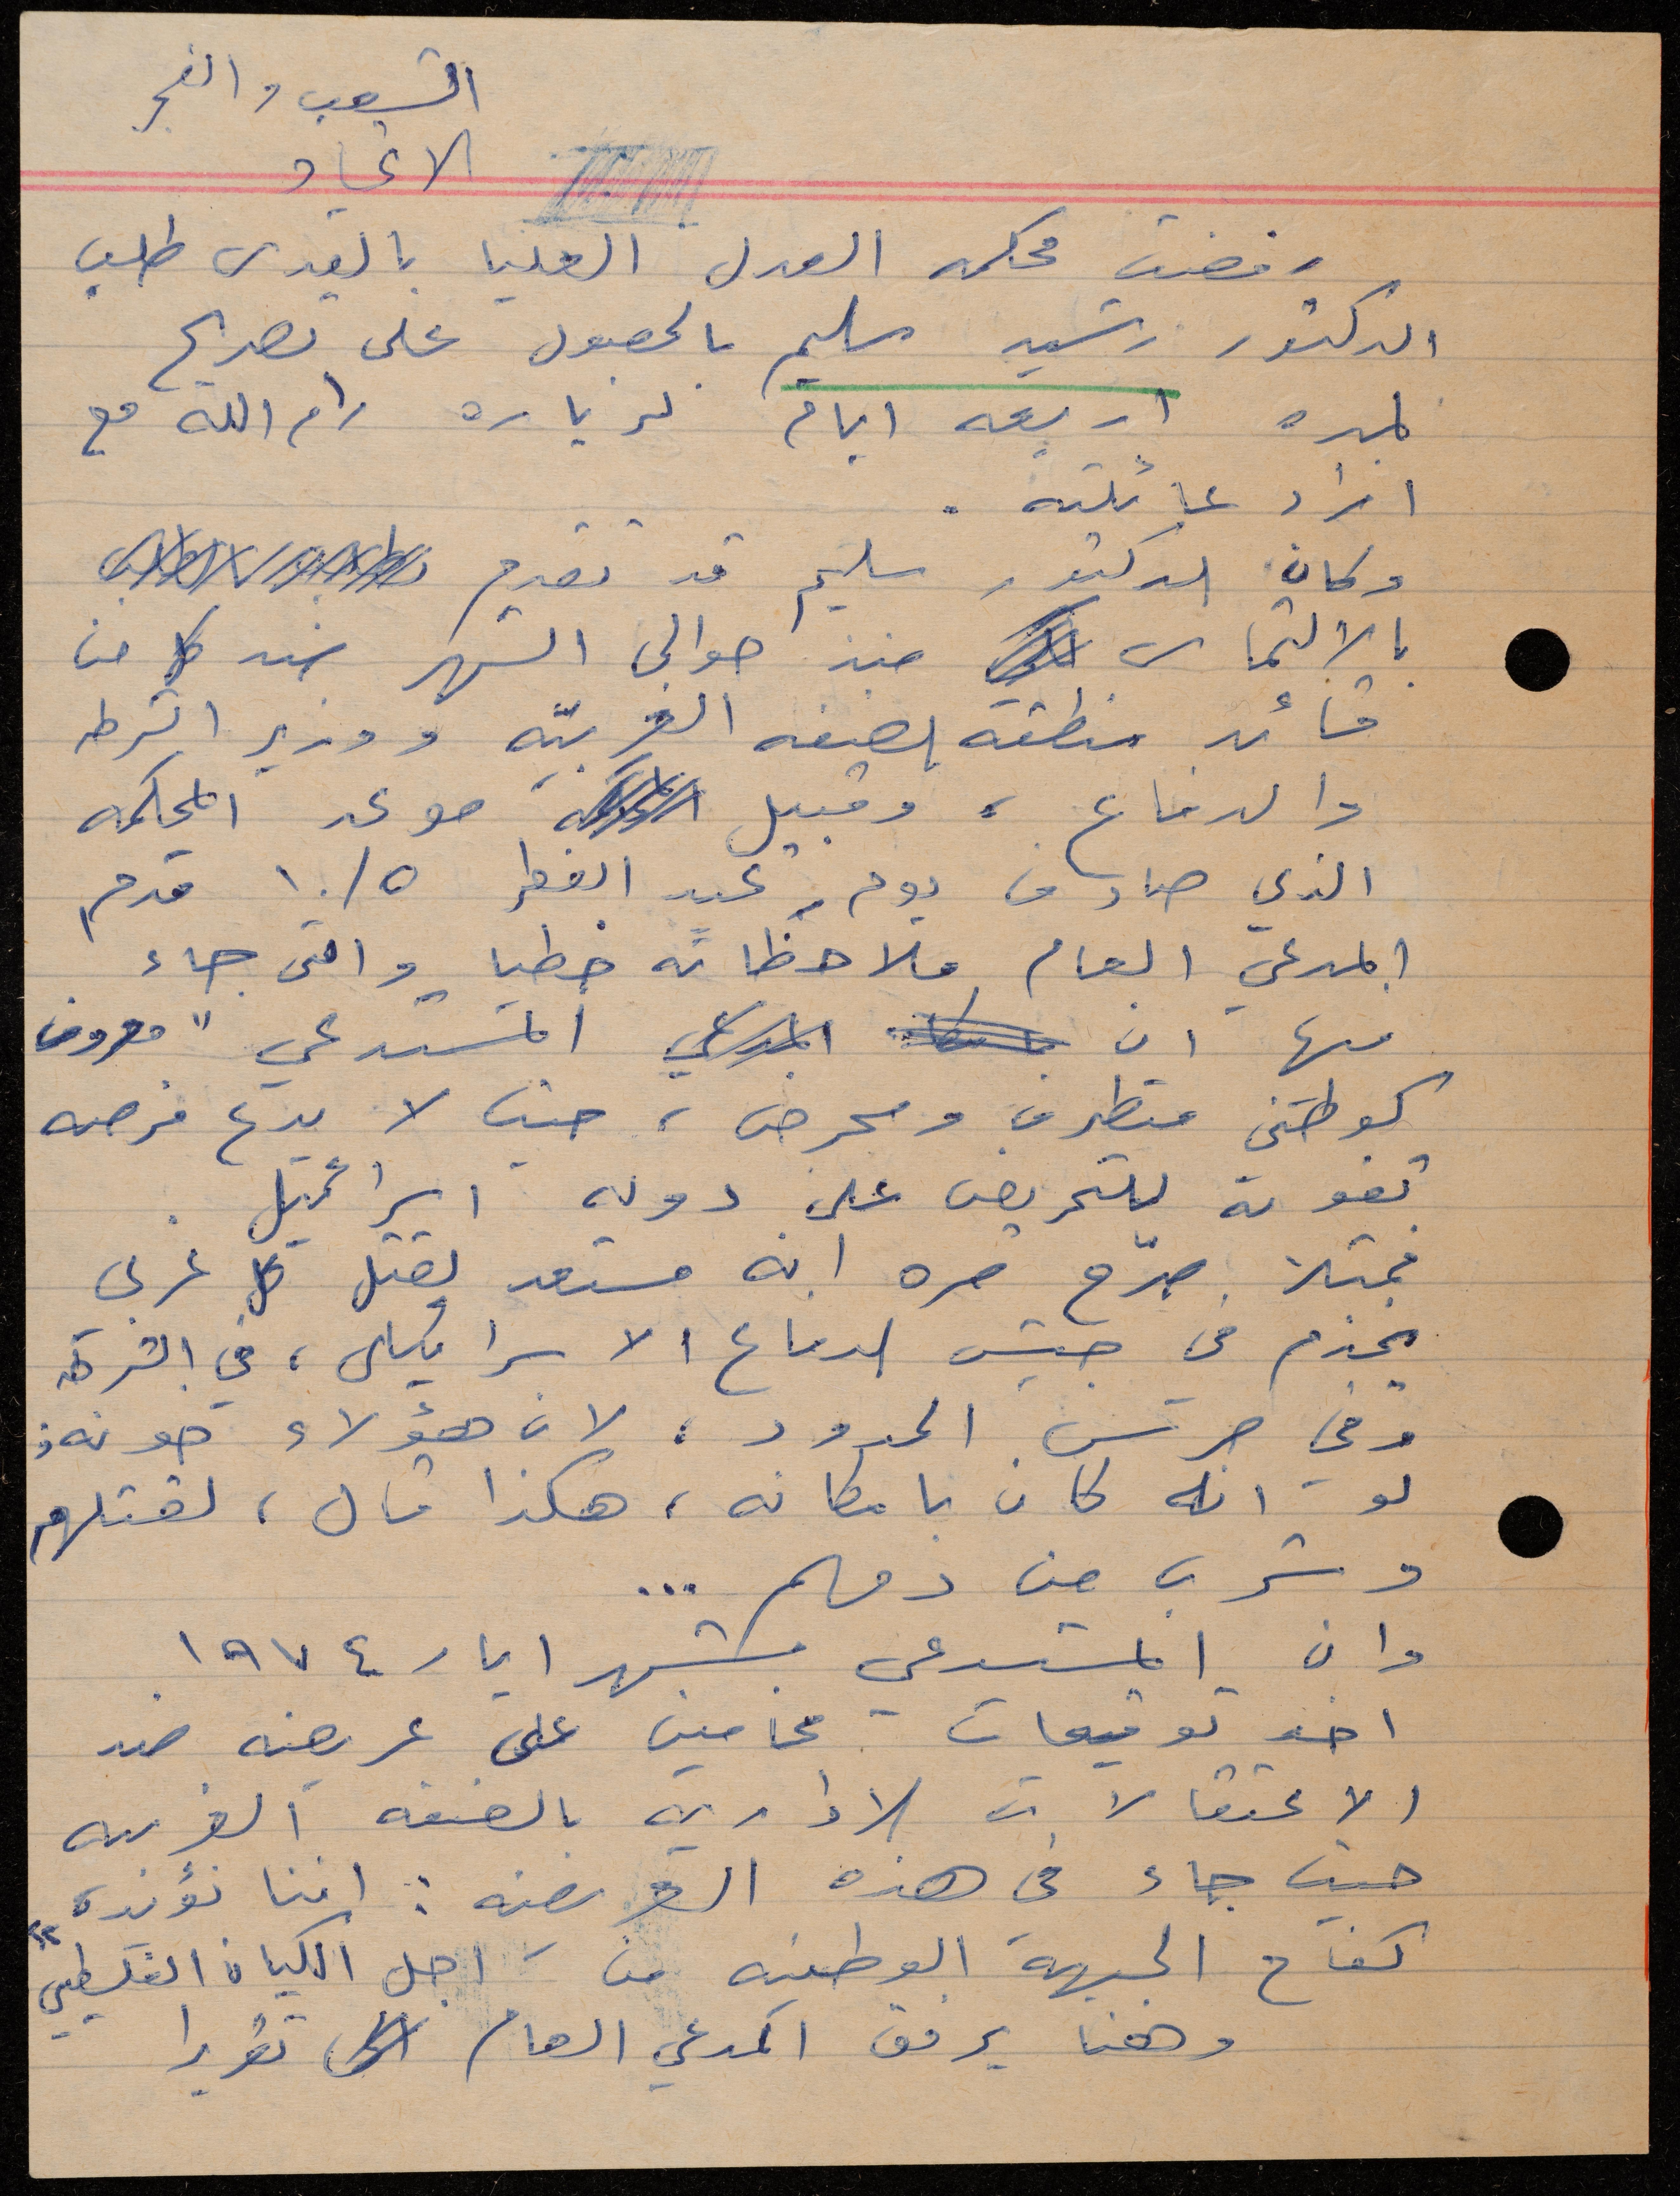 الشعب والفجر
الاتحاد
رفضت محكمه العدل العليا بالقدس طلب
الدكتور رشيد سليم بالحصول على تصريح
لمده اربعه ايام لزياره رام الله مع
افراد عائلته .
وكان الدكتور سليم قد تقدم
بالالتماس منذ حوالي الشهر ضد كل من
قائد منطقة الضفه الغربيّه ووزير الشرطه
والدفاع ، وقبيل موعد المحكمه
الذي صادف يوم عيد الفطر ١٠/٥ قدم
المدعي العام ملاحظاته خطياً والتي جاء
فيها ان المدعي المستدعي "معروف
كوطني متطرف ومحرض ، حيث لا يدع فرصه
تفوته للتحريض على دوله اسرائيل .
فمثلا صرّح مره انه مستعد لقتل كل عربي
يخدم في جيش الدفاع الاسرائيلي ، في الشرطه
وفي حرس الحدود ، لان هؤلاء خونه ;
لو انه كان بامكانه ، هكذا قال ، لقتلهم
وشرب من دمهم ...
وان المستدعي بشهر ايار ١٩٧٤
اخذ توقيعات محامين على عريضه ضد
الاعتقالات الاداريه بالضفه الغربيه
حيث جاء في هذه العريضه : اننا نؤيد
كفاح الجبهة الوطنيه من اجل الكيان الفلسطيني"
وهنا يرفق المدعي العام تقريرا